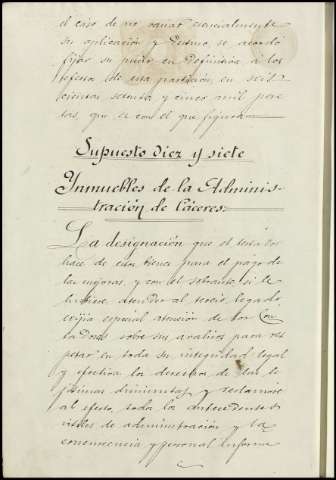 el caso de no variar sensualmente
su aplicación y último, se acordó
fijar su precio en definitiva á los
efectos de esta partición, en seis
cientas setenta y cinco mil pese
tas, que es con el que figura
Supuesto diez y siete
Inmuebles de la Adminis-
tración de Cáceres.
La designación que el testador
hace de esos bienes para el pago de
las mejoras, y con el sobrante, si le
hubiese, atender al tercio legado,
exijía especial atención de los Con
tadores sobre sus avalúos para res
petar en toda su integridad legal
y efectiva los derechos de las le
jítimas
al efecto, todos los antecedentes
útiles de administración y la
concurrencia y personal informe